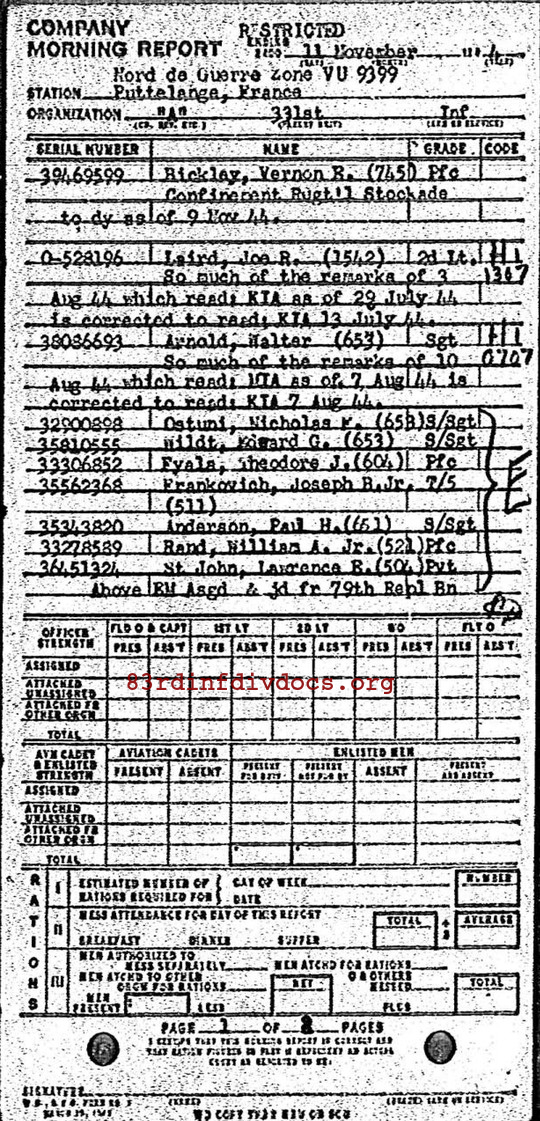 COMPANY
MORNING REPORT
RESTRICTED
ENDING
2400 11 November 194 4
Nord de Guerre Zone VU 9399
STATION Puttelange, France
ORGANIZATION "A" 331st Inf
SERIAL NUMBER NAME GRADE CODE
39469599 Bickley, Vernon R. (745) Pfc
Confinement Rugt'l Stockade
to dy as of 9 Nov 44.
O-528196 Laird, Joe R. (1542) 2d Lt. H1
So much of the remarks of 3 1307
Aug 44 which read: KIA as of 29 July 44
is corrected to read: KIA 13 July 44.
38036693 Arnold, Walter (653) Sgt H1
So much of the remarks of 10 0707
Aug 44 which read: MIA as of 7 Aug 44 is
corrected to read: KIA 7 Aug 44.
32900898 Ostuni, Nicholas F. (653) S/Sgt
35810555 Wildt, Edward G. (653) S/Sgt
33306852 Fyala, Theodore J. (604) Pfc
35562368 Frankovich, Joseph B.Jr. T/5
(511)
35343820 Anderson, Paul H. (651) S/Sgt
33278589 Rand, William A. Jr. (521) Pfc
36451324 St John, Lawrence E. (504) Pvt
Above EM Asgd & jd fr 79th Repl Bn
OFFICER STRENGTH FLD O & CAPT 1ST LT 2D LT WO FLT O
PRES ABS'T PRES ABS'T PRES ABS'T PRES ABS'T PRES ABS'T
ASSIGNED
ATTACHED UNASSIGNED
ATTACHED FR OTHER ORGN
TOTAL
83rdinfdivdocs.org
AVN CADET & ENLISTED STRENGTH AVIATION CADETS ENLISTED MEN
PRESENT ABSENT PRESENT FOR DUTY PRESENT NOT FOR DY ABSENT PRESENT AND ABSENT
ASSIGNED
ATTACHED UNASSIGNED
ATTACHED FR OTHER ORGN
TOTAL
RATIONS
I ESTIMATED NUMBER OF RATIONS REQUIRED FOR DAY OF WEEK DATE NUMBER
II MESS ATTENDANCE FOR DAY OF THIS REPORT TOTAL ÷ 3 AVERAGE
BREAKFAST DINNER SUPPER
III MEN AUTHORIZED TO MESS SEPARATELY MEN ATCHD FOR RATIONS
MEN ATCHD TO OTHER ORGN FOR RATIONS NET OR OTHERS MESSED TOTAL
MEN PRESENT LESS PLUS
PAGE 1 OF 2 PAGES
I CERTIFY THAT THIS MORNING REPORT IS CORRECT AND
SIGNATURE